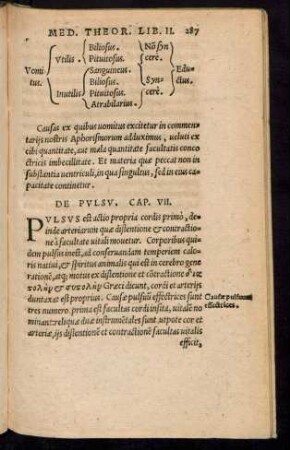 MED. THEOR. LIB. II. 287
Biliosus. Nō syn
Vtilis Pituitosus. cerè.
Vomi Sanguineus. Edu
tus. Biliosus. Syn- ctus.
Inutilis Pituitosus. cerè.
Atrabilarius.
Causas ex quibus uomitus excitetur in commen-
tarijs nostris Aphorismorum adduximus, ueluti ex
cibi quantitate, aut mala quantitate facultatis conco
ctricis imbecillitate. Et materia quæ peccat non in
substantia uentriculi, in qua singultus, sed in eius ca-
pacitate continetur.
DE PVLSV. CAP. VII.
PVLSVS est actio propria cordis primò, de-
inde arteriarum quæ distentione & contractio-
ne à facultate uitali mouetur. Corporibus qui
dem pulsus inest, ad conseruandam temperiem calo-
ris natiui, & spiritus animalis qui est in cerebro gene-
rationē, atq; motus ex distentione et cōtractione διας
τολὴν & συστολὴν Græci dicunt, cordi et arterijs
iunt axat est proprius. Causæ pulsuū effectrices sunt
tres numero. prima est facultas cordi insita, uitalē no
minant: reliquæ duæ instrumētales sunt, utpote cor et
arteriæ, ijs distentionē et contractionē facultas uitalis
efficit,
Causæ pulsuum
effectrices.